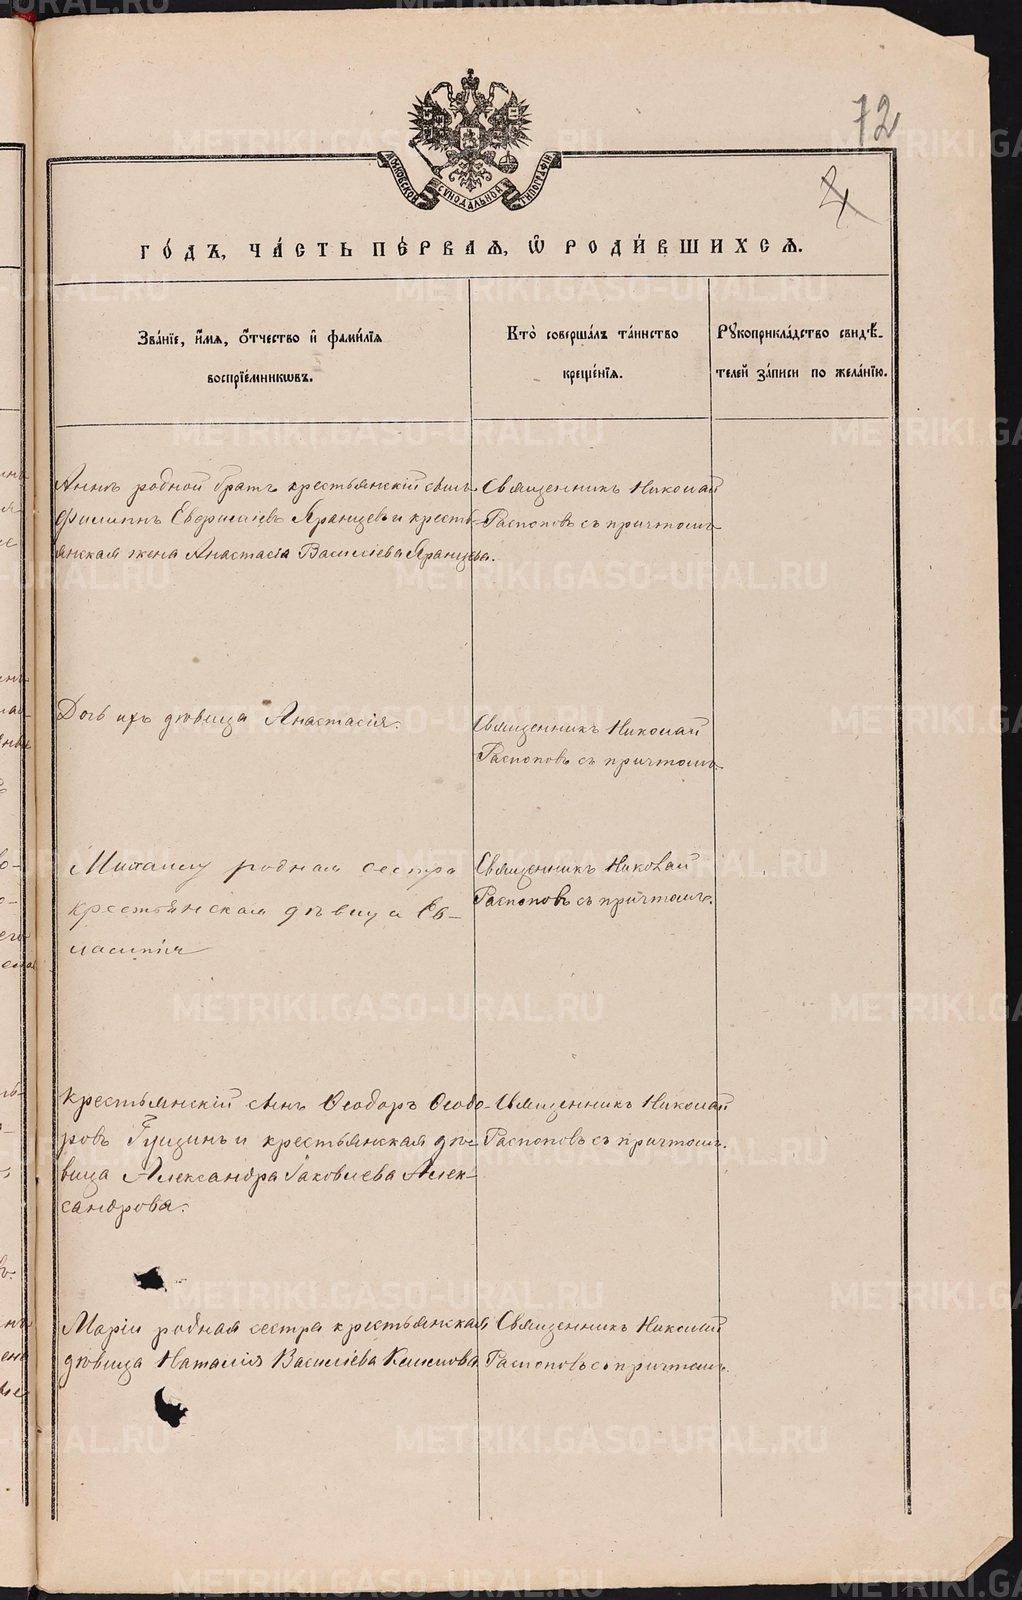 72
4
МОСКОВСКОЙ СѴНОДАЛЬНОЙ ТИПОГРАФІИ
ГО́ДЪ, ЧА́СТЬ ПЕ́РВАѦ, Ѽ РОДИ́ВШИХСѦ.
Зва́нїе, и҆́мѧ, ѻ҆́тчество и҆ фами́лїѧ
воспрїе́мникѡвъ.
Кто̀ соверша́лъ та́инство
креще́нїѧ.
Рꙋкоприкла́дство свидѣ́-
телей за́писи по жела́нїю.
Аннѣ родной братъ крестьянскій сынъ
Филиппъ Евфиміевъ Яранцевъ и кресть-
янская жена Анастасія Василіева Яранцева.
Священникъ Николай
Распоповъ съ причтомъ
Дочь ихъ дѣвица Анастасія.
Священникъ Николай
Распоповъ съ причтомъ
Михаилу родная сестра
крестьянская дѣвица Ев-
лампія
Священникъ Николай
Распоповъ съ причтомъ.
Крестьянскій сынъ Ѳеодоръ Ѳеодо-
ровъ Гущинъ и крестьянская дѣ-
вица Александра Іаковлева Алек-
сандрова.
Священникъ Николай
Распоповъ съ причтомъ.
Маріи родная сестра крестьянская
дѣвица Наталія Василіева
Священникъ Николай
Распоповъ съ причтомъ.
METRIKI.GASO-URAL.RU